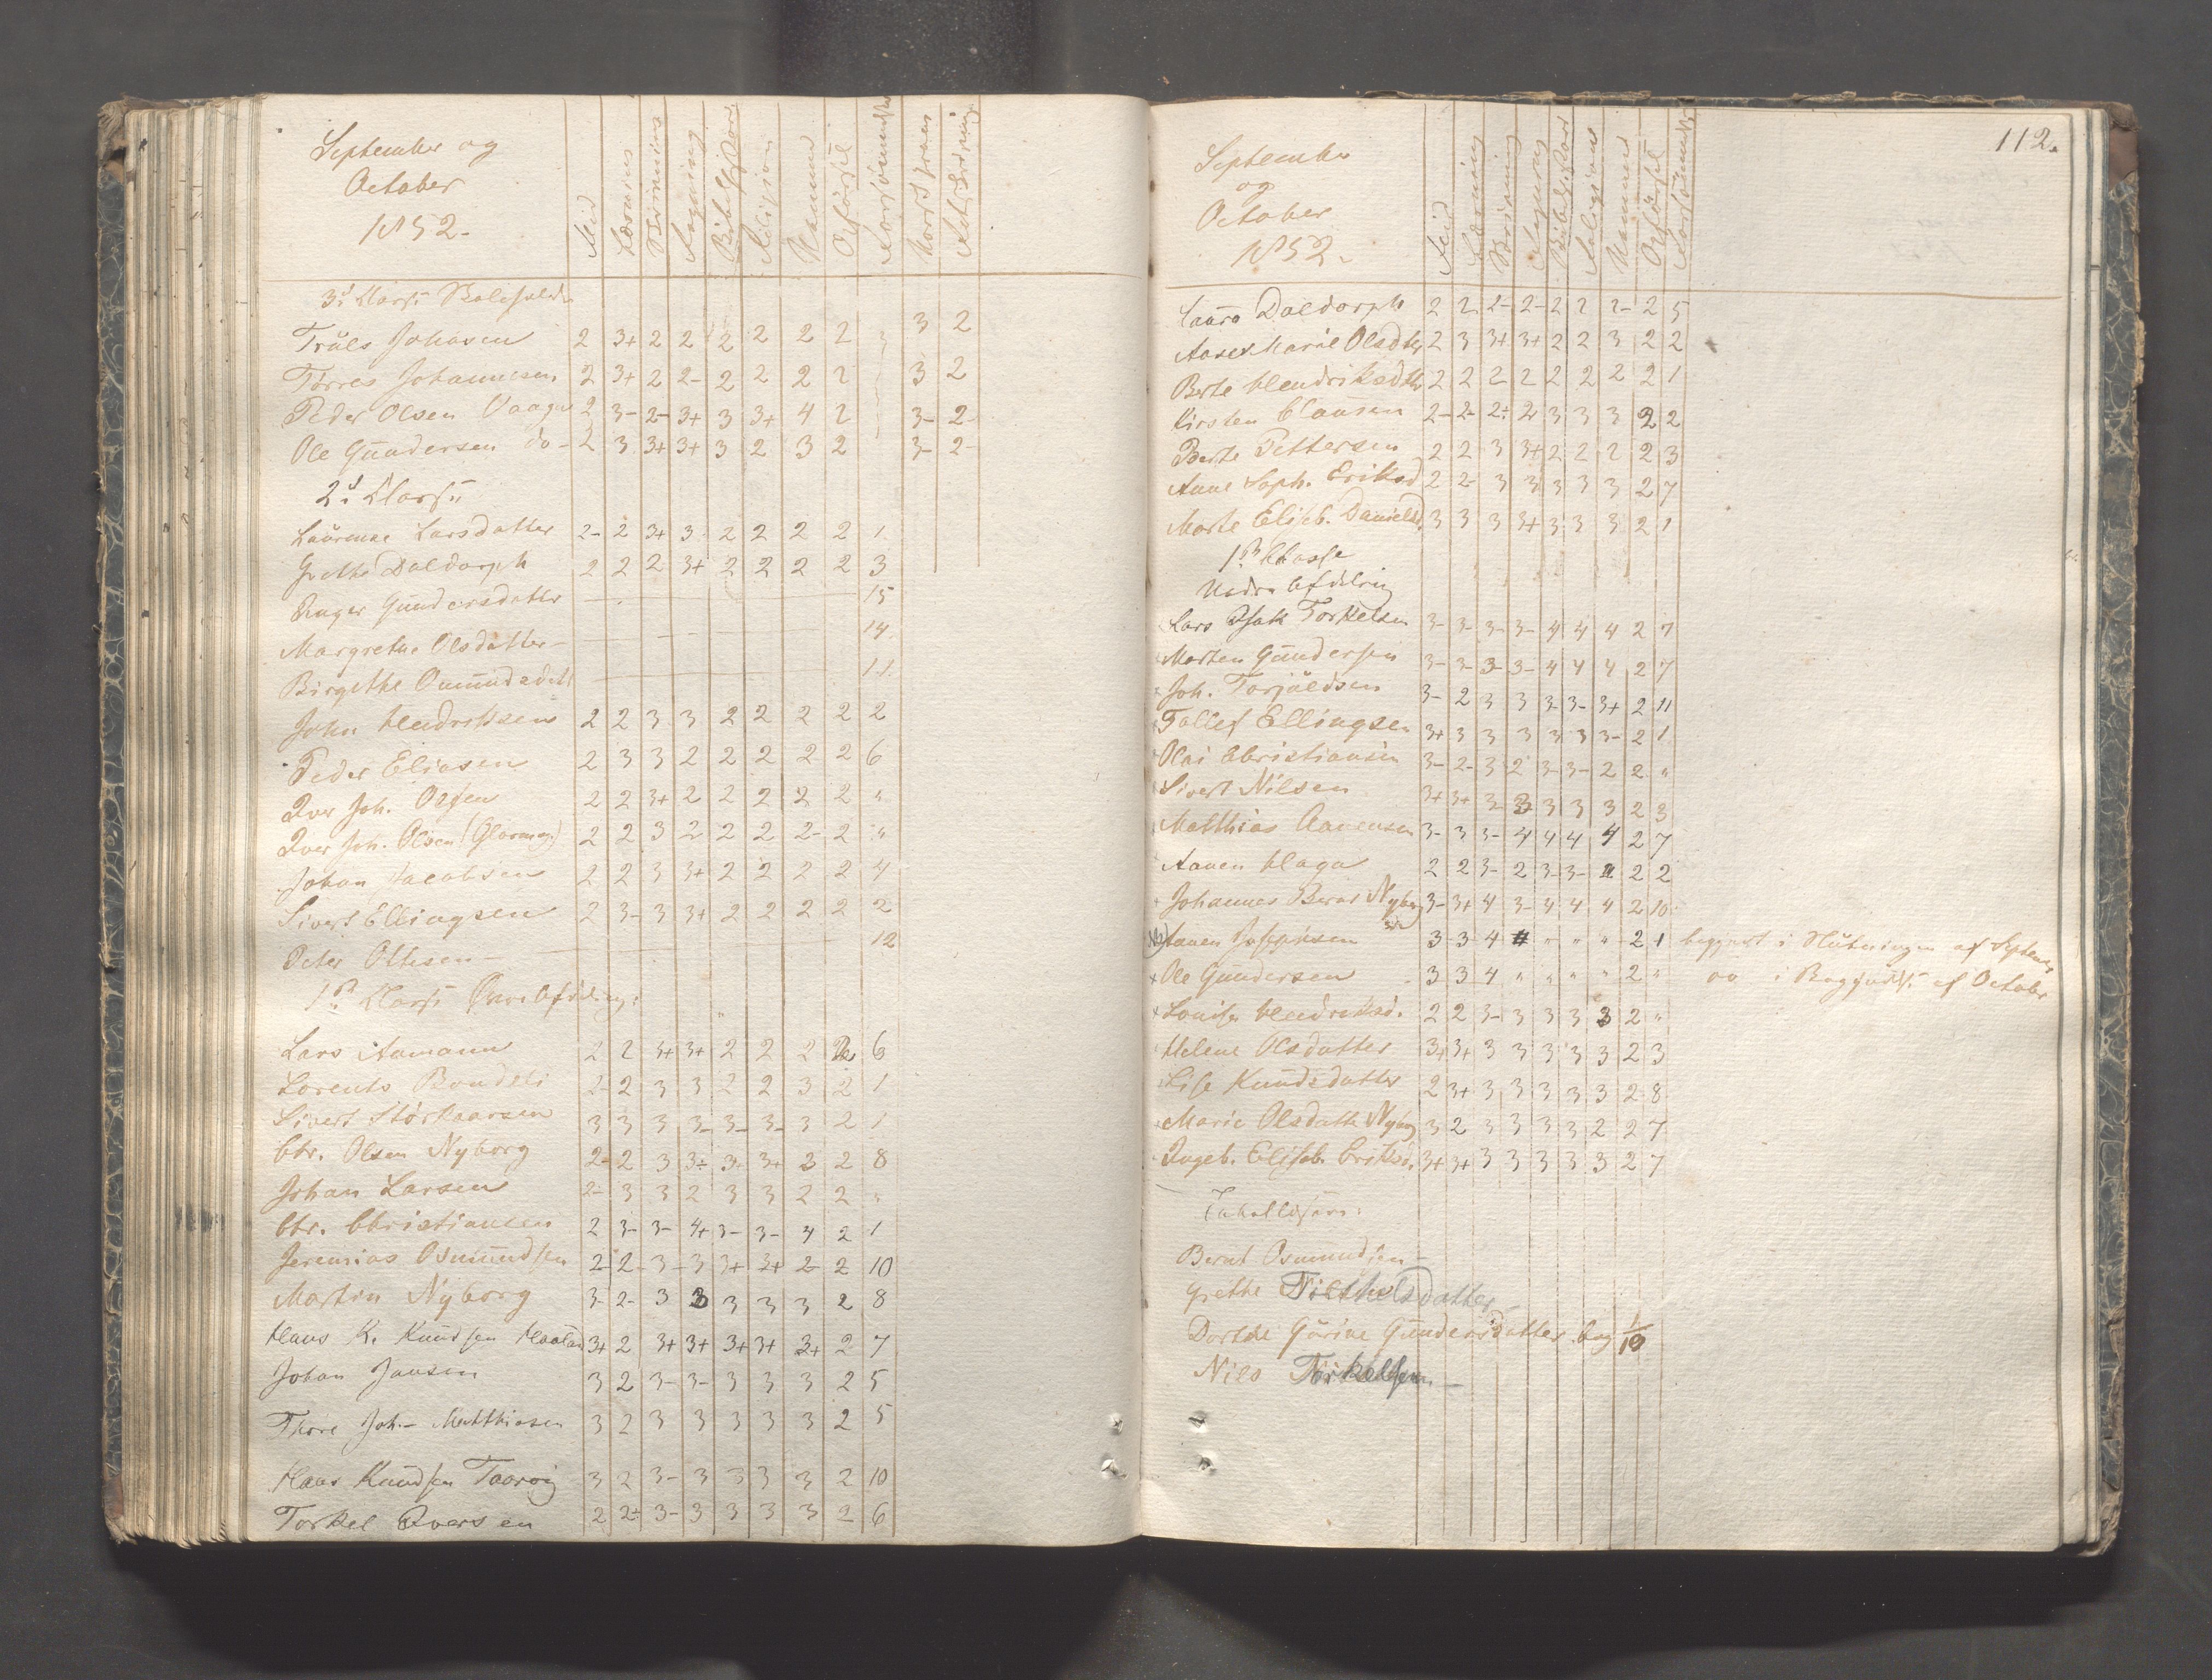 September og
October
1852.
Flid Læsning Skrivning Regning Religion Udførsel Forsømmelse Norsk
3d Classe
Truls Johnsen 2 3+ 2 2 2 2 2 2 3 2
Torres Johannesen 2 3+ 2 2- 2 2 2 2 3 2
Peder Olsen Vaage 2 3- 2- 3+ 3 3+ 4 2 3- 2-
Ole Gundersen do- 2 3 3+ 3+ 3 2 3 2 3- 2-
2d Classe
Laurense Larsdatter 2- 2 3+ 3 2 2 2 2 1
Grethe Daldorph 2 2 2 3+ 2 2 2 2 3
Inger Gundersdatter 15
Margrethe Olsdatter - 14
Birgethe Omundsdatt 11
John Hendriksen 2 2 3 3 2 2 2 2 2
Peder Eliasen 2 3 3 2 2 2 2 2 6
Iver Joh. Olsen 2 2 3+ 2 2 2 2 2 "
Iver Joh. Olsen 2 2 3 2 2 2 2- 2 "
Johan Jacobsen 2 2 3 3+ 2 2 2 2 4
Sivert Ellingsen 2 3- 3 3+ 2 2 2 2 2
Peter Ottesen - 12
1ste Classe
Lars Aamann 2 2 3+ 3+ 2 2 2 2 6
Lorents Bondeli 2- 2 3 3 2 2 3 2 1
Sivert Storkaarsen 3 3 3 3- 3- 3- 3 2 1
Chr. Olsen Nyborg 2- 2 3 3- 3- 3+ 2 2 8
Johan Larsen 2- 3 3 2 3 3 2 2 "
Chr. Christiansen 2 3- 3- 4+ 3- 3- 4 2 1
Jeremias Osmundsen 2- 2- 3- 3 3+ 3+ 2- 2 10
Martin Nyborg 3- 2- 3 3 3 3 3 2 8
Hans K. Knudsen 3+ 2 3+ 3+ 3+ 3+ 3+ 2 7
Johan Jansen 3 2 3- 3- 3 3 3 2 5
Thore Joh. Matthiasen 3 2 3 3 3 3 3 2 5
Hans Knudsen 3 2 3- 3 3 3 3 2 10
Torkel Iversen 2 2- 3- 3 3 3 3 2 6
112.
September
og
October
1852.
Flid Læsning Skrivning Regning Religion Udførsel Forsømmelse
Laura Daldorph 2 2 2- 2- 2 2 2- 2 5
Aase Marie Olsdtr 2 3 3+ 3+ 2 2 3 2 2
Berte Hendriksdtr 2 2 2 2 2 2 2 2 1
Kirsten Clausen 2- 2- 2- 2 3 3 3 2 2
Berte Pettersen 2 2 3 3+ 2 2 2 2 3
Anne Soph. Eriksd 2 2- 3 3 3 3 3 2 7
Marte Elisb. Danielsd. 3 3 3 3+ 3 3 3 2 1
1ste Classe
Nedre Afdeling
Lars Isak Torkelsen 3- 3- 3- 3- 4 4 4 2 7
Morten Gundersen 3- 3- 3- 3- 4 4 4 2 7
Joh. Torjuldsen 3- 2 3 3 3- 3- 3+ 2 11
Tollef Ellingsen 3+ 3 3 3 3 3 3- 2 1
Olai Christiansen 3- 2- 3 2 3- 3- 2 2 "
Sivert Nilsen 3+ 3+ 3- 3 3 3 3 2 3
Matthias Aanensen 3- 3 3- 4 4 4 4 2 7
Aanen Haga 2 2 3- 2 3- 3- 2 2 2
Johannes Bernt Nyborg 3- 3+ 4 3- 4 4 4 2 10
Aanen Josephsen 3- 3- 4 " " " 2 1 begyndt i Slutningen af Septemr
Ole Gundersen 3 3 4 " " " " 2 " do i Begyndels. af Octobr
Louise Hendriksd. 2 2 3- 3 3 3 3 2 "
Helene Olsdatter 3+ 3+ 3 3 3 3 3 2 3
Lise Knudsdatter 2 3+ 3 3 3 3 3 2 8
Marie Olsdatter Nyborg 3 2 3 3 3 3 2 2 7
Ingeb. Elisab. Eriksd. 3+ 3+ 3 3 3 3 3 2 7
Bernt Osmundsen -
Grethe
Dorthe Gurine Gundersdatter beg 1/10
Nils Torkelsen -